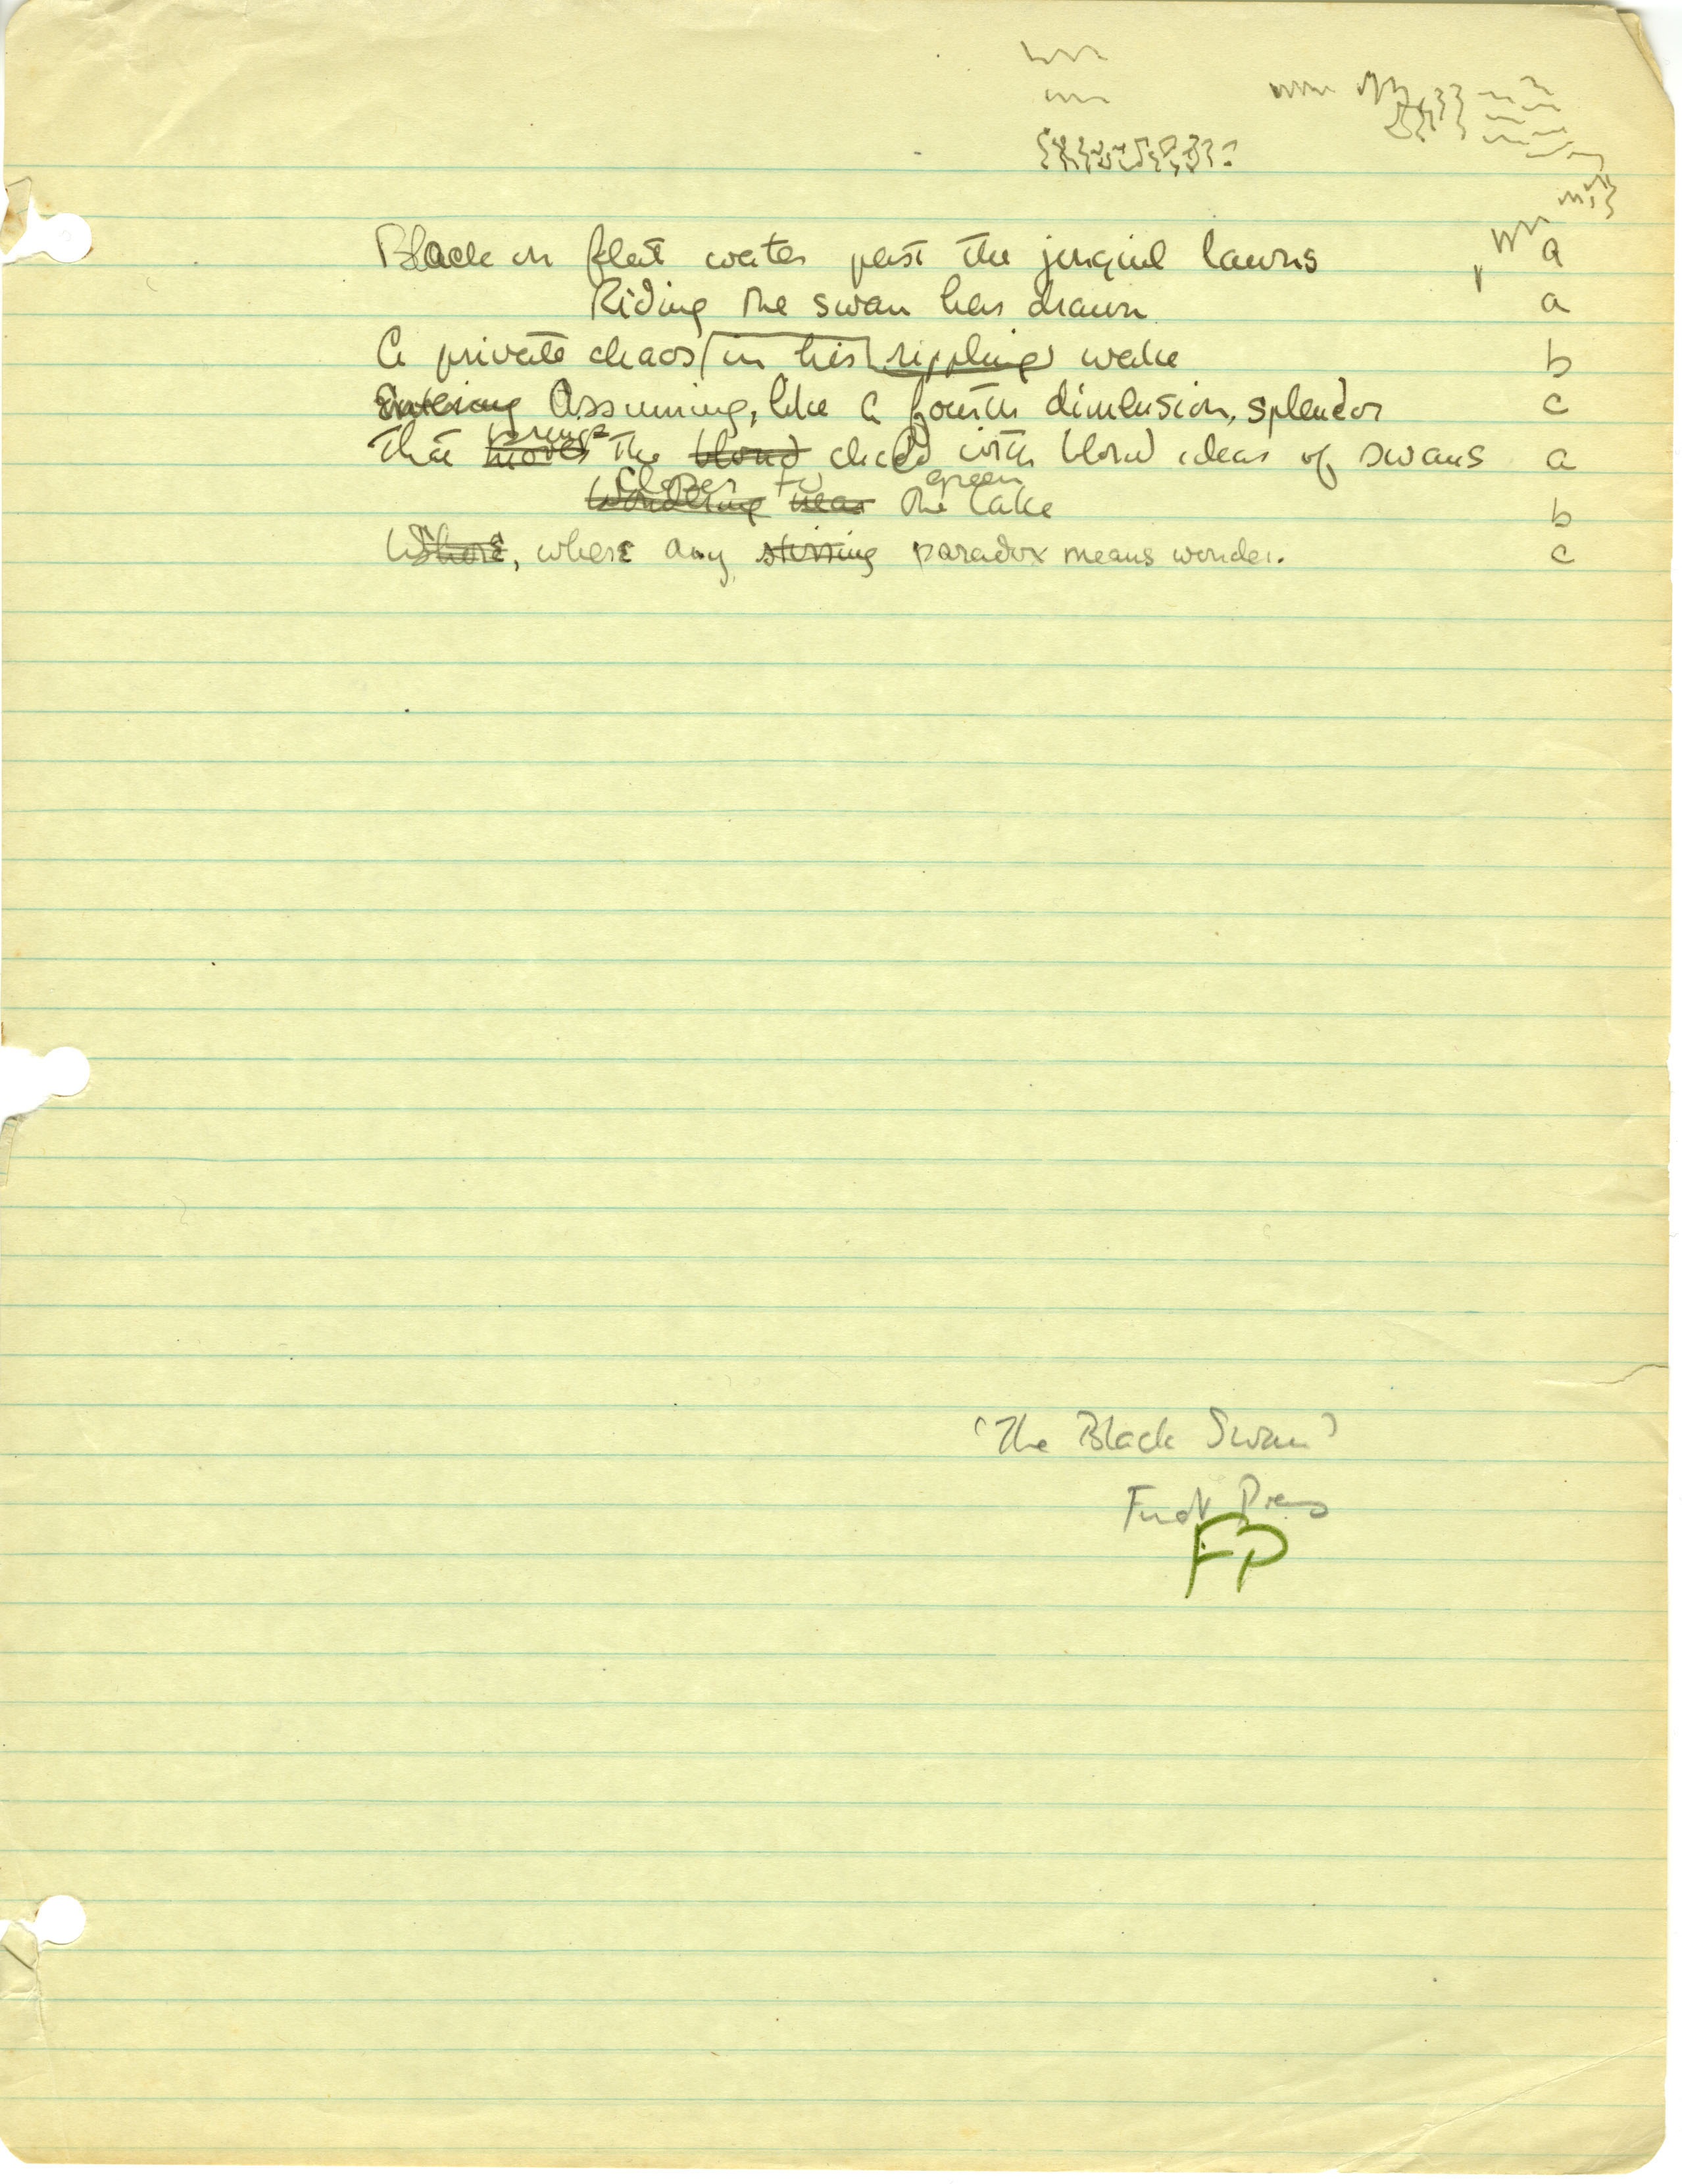 Black on flat water past the jonquil lawns a
Riding the swan has drawn a
A private chaos in his rippling wake b
Entering Assuming, like a fourth dimension, splendor c
brings
That moves the blond child with blond ideas of swans a
Closer to green
Wondering near the lake b
Where, where any stirring paradox means wonder. c
'The Black Swan'
First Poems
FP